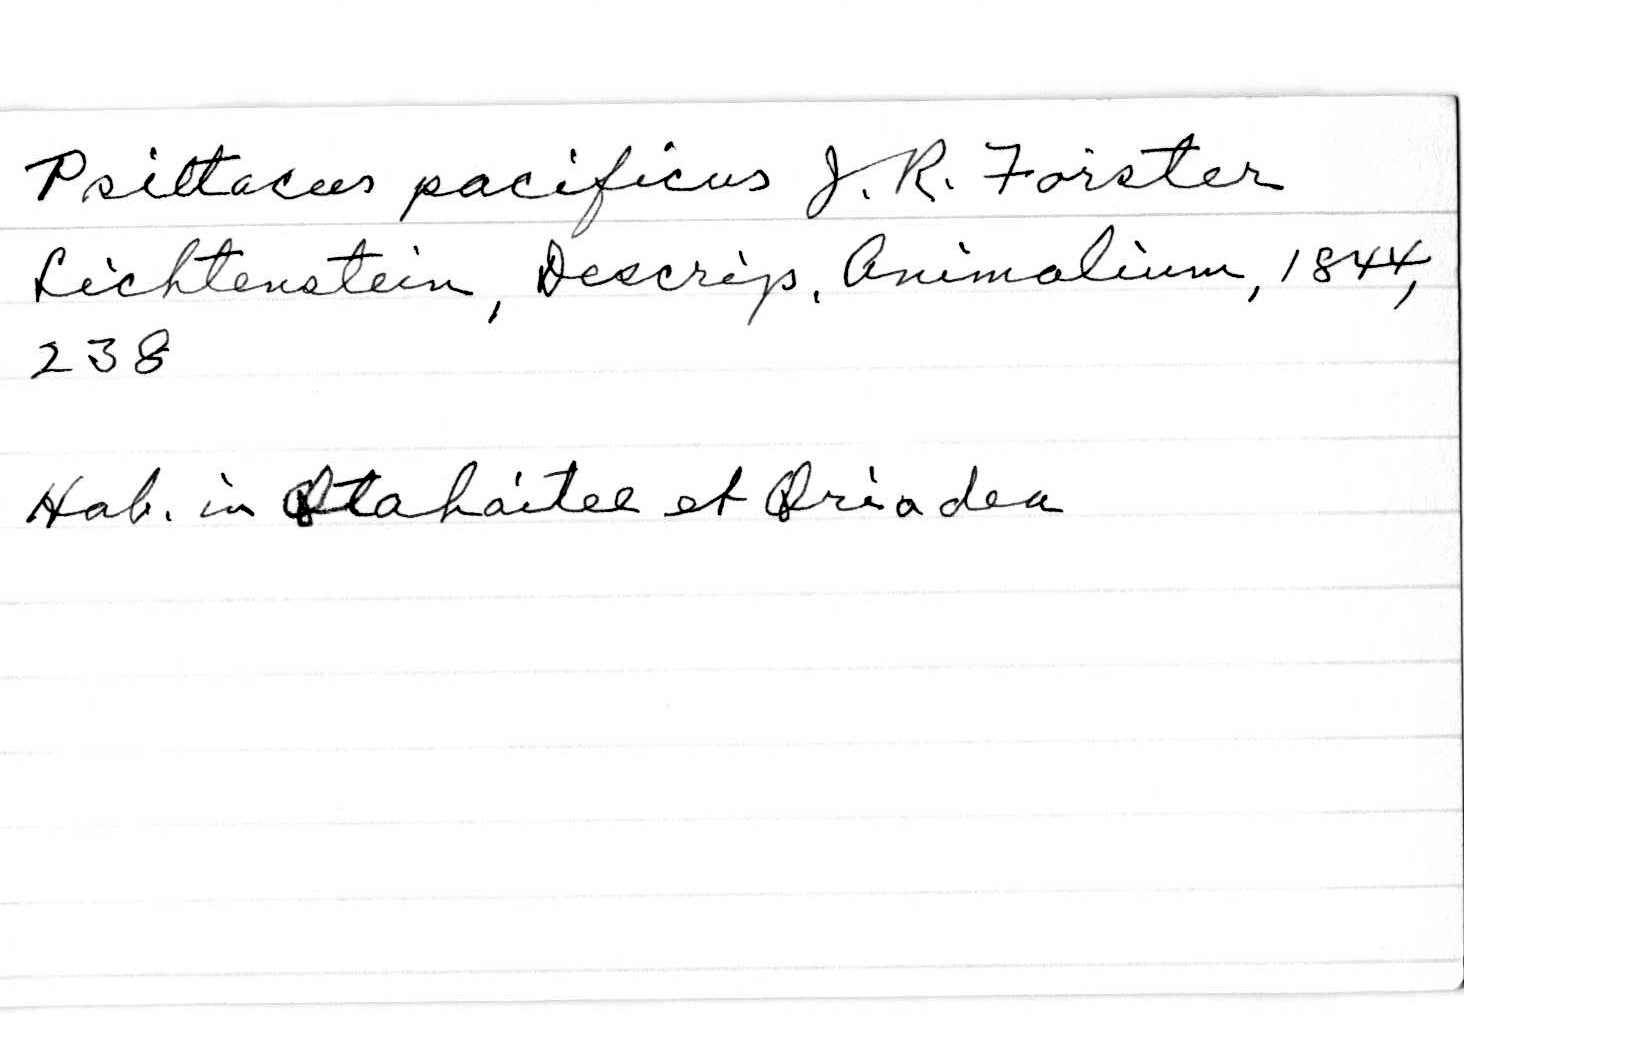 Psittacus pacificus J. R. Forster
Lichtenstein, Descrip. Animalium, 1844,
238
Hab. in Otahaitee et Oriadea